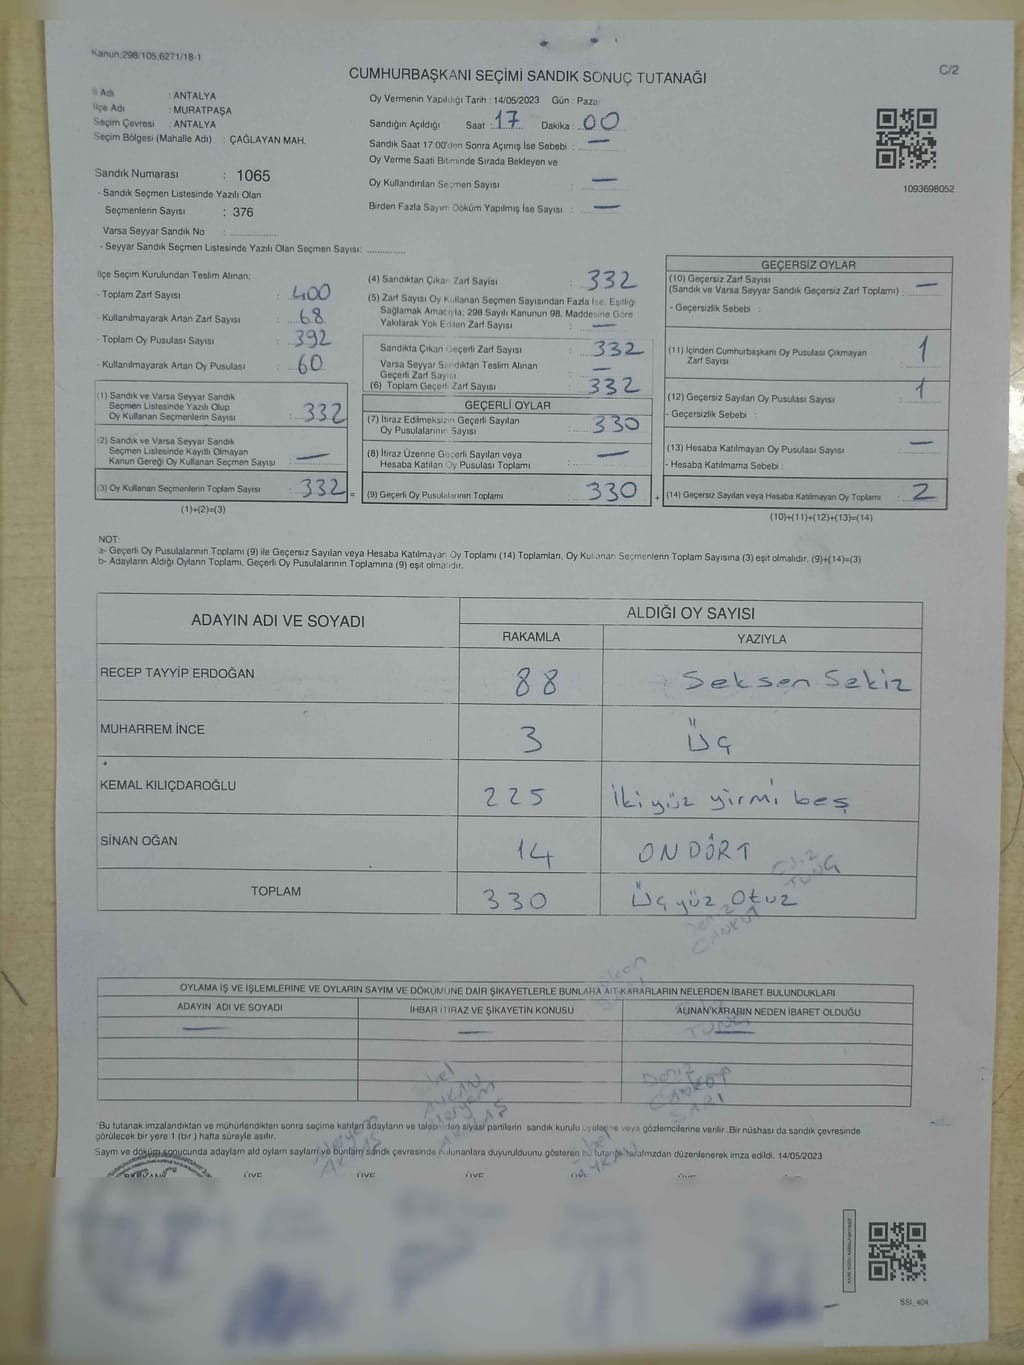 Kanun:298/105,6271/18-1
C/2
CUMHURBAŞKANI SEÇİMİ SANDIK SONUÇ TUTANAĞI
İl Adı : ANTALYA
İlçe Adı : MURATPAŞA
Seçim Çevresi : ANTALYA
Seçim Bölgesi (Mahalle Adı) : ÇAĞLAYAN MAH.
Sandık Numarası : 1065
- Sandık Seçmen Listesinde Yazılı Olan
Seçmenlerin Sayısı : 376
Varsa Seyyar Sandık No :
- Seyyar Sandık Seçmen Listesinde Yazılı Olan Seçmen Sayısı:
Oy Vermenin Yapıldığı Tarih : 14/05/2023 Gün : Pazar
Sandığın Açıldığı Saat : 17 Dakika : 00
Sandık Saat 17:00'den Sonra Açımış İse Sebebi : —
Oy Verme Saati Bitiminde Sırada Bekleyen ve
Oy Kullandırılan Seçmen Sayısı : —
Birden Fazla Sayım Döküm Yapılmış İse Sayısı : —
1093698052
İlçe Seçim Kurulundan Teslim Alınan:
- Toplam Zarf Sayısı : 400
- Kullanılmayarak Artan Zarf Sayısı : 68
- Toplam Oy Pusulası Sayısı : 392
- Kullanılmayarak Artan Oy Pusulası : 60
(1) Sandık ve Varsa Seyyar Sandık
Seçmen Listesinde Yazılı Olup
Oy Kullanan Seçmenlerin Sayısı : 332
(2) Sandık ve Varsa Seyyar Sandık
Seçmen Listesinde Kayıtlı Olmayan
Kanun Gereği Oy Kullanan Seçmen Sayısı : —
(3) Oy Kullanan Seçmenlerin Toplam Sayısı : 332 =
(1)+(2)=(3)
(4) Sandıktan Çıkan Zarf Sayısı : 332
(5) Zarf Sayısı Oy Kullanan Seçmen Sayısından Fazla İse, Eşitliği
Sağlamak Amacıyla; 298 Sayılı Kanunun 98. Maddesine Göre
Yakılarak Yok Edilen Zarf Sayısı : —
Sandıkta Çıkan Geçerli Zarf Sayısı : 332
Varsa Seyyar Sandıktan Teslim Alınan
Geçerli Zarf Sayısı : —
(6) Toplam Geçerli Zarf Sayısı : 332
GEÇERLİ OYLAR
(7) İtiraz Edilmeksizin Geçerli Sayılan
Oy Pusulalarının Sayısı : 330
(8) İtiraz Üzerine Geçerli Sayılan veya
Hesaba Katılan Oy Pusulası Toplamı : —
(9) Geçerli Oy Pusulalarının Toplamı : 330 +
GEÇERSİZ OYLAR
(10) Geçersiz Zarf Sayısı
(Sandık ve Varsa Seyyar Sandık Geçersiz Zarf Toplamı) : —
- Geçersizlik Sebebi :
(11) İçinden Cumhurbaşkanı Oy Pusulası Çıkmayan
Zarf Sayısı : 1
(12) Geçersiz Sayılan Oy Pusulası Sayısı : 1
- Geçersizlik Sebebi :
(13) Hesaba Katılmayan Oy Pusulası Sayısı : —
- Hesaba Katılmama Sebebi :
(14) Geçersiz Sayılan veya Hesaba Katılmayan Oy Toplamı : 2
(10)+(11)+(12)+(13)=(14)
NOT:
a- Geçerli Oy Pusulalarının Toplamı (9) ile Geçersiz Sayılan veya Hesaba Katılmayan Oy Toplamı (14) Toplamları, Oy Kullanan Seçmenlerin Toplam Sayısına (3) eşit olmalıdır. (9)+(14)=(3)
b- Adayların Aldığı Oyların Toplamı, Geçerli Oy Pusulalarının Toplamına (9) eşit olmalıdır.
ADAYIN ADI VE SOYADI ALDIĞI OY SAYISI
RAKAMLA YAZIYLA
RECEP TAYYİP ERDOĞAN 88 Seksen Sekiz
MUHARREM İNCE 3 Üç
KEMAL KILIÇDAROĞLU 225 İkiyüz yirmi beş
SİNAN OĞAN 14 ON DÖRT
TUNÇ
TOPLAM 330 Üçyüz Otuz
Deniz
CANKUT
OYLAMA İŞ VE İŞLEMLERİNE VE OYLARIN SAYIM VE DÖKÜMÜNE DAİR ŞİKAYETLERLE BUNLARA AİT KARARLARIN NELERDEN İBARET BULUNDUKLARI
ADAYIN ADI VE SOYADI İHBAR İTİRAZ VE ŞİKAYETİN KONUSU ALINAN KARARIN NEDEN İBARET OLDUĞU
— — —
TUNÇ
Deniz
CANKUT
SARI
*Bu tutanak imzalandıktan ve mühürlendikten sonra seçime katılan adayların ve talep eden siyasi partilerin sandık kurulu üyelerine veya gözlemcilerine verilir .Bir nüshası da sandık çevresinde
görülecek bir yere 1 (bir ) hafta süreyle asılır.
Sayım ve döküm sonucunda adayların ald oyların sayıları ve bunların sandık çevresinde bulunanlara duyurulduunu gösteren bu tutanak tarafımızdan düzenlenerek imza edildi. 14/05/2023
BAŞKAN ÜYE ÜYE ÜYE ÜYE ÜYE
SSI_404